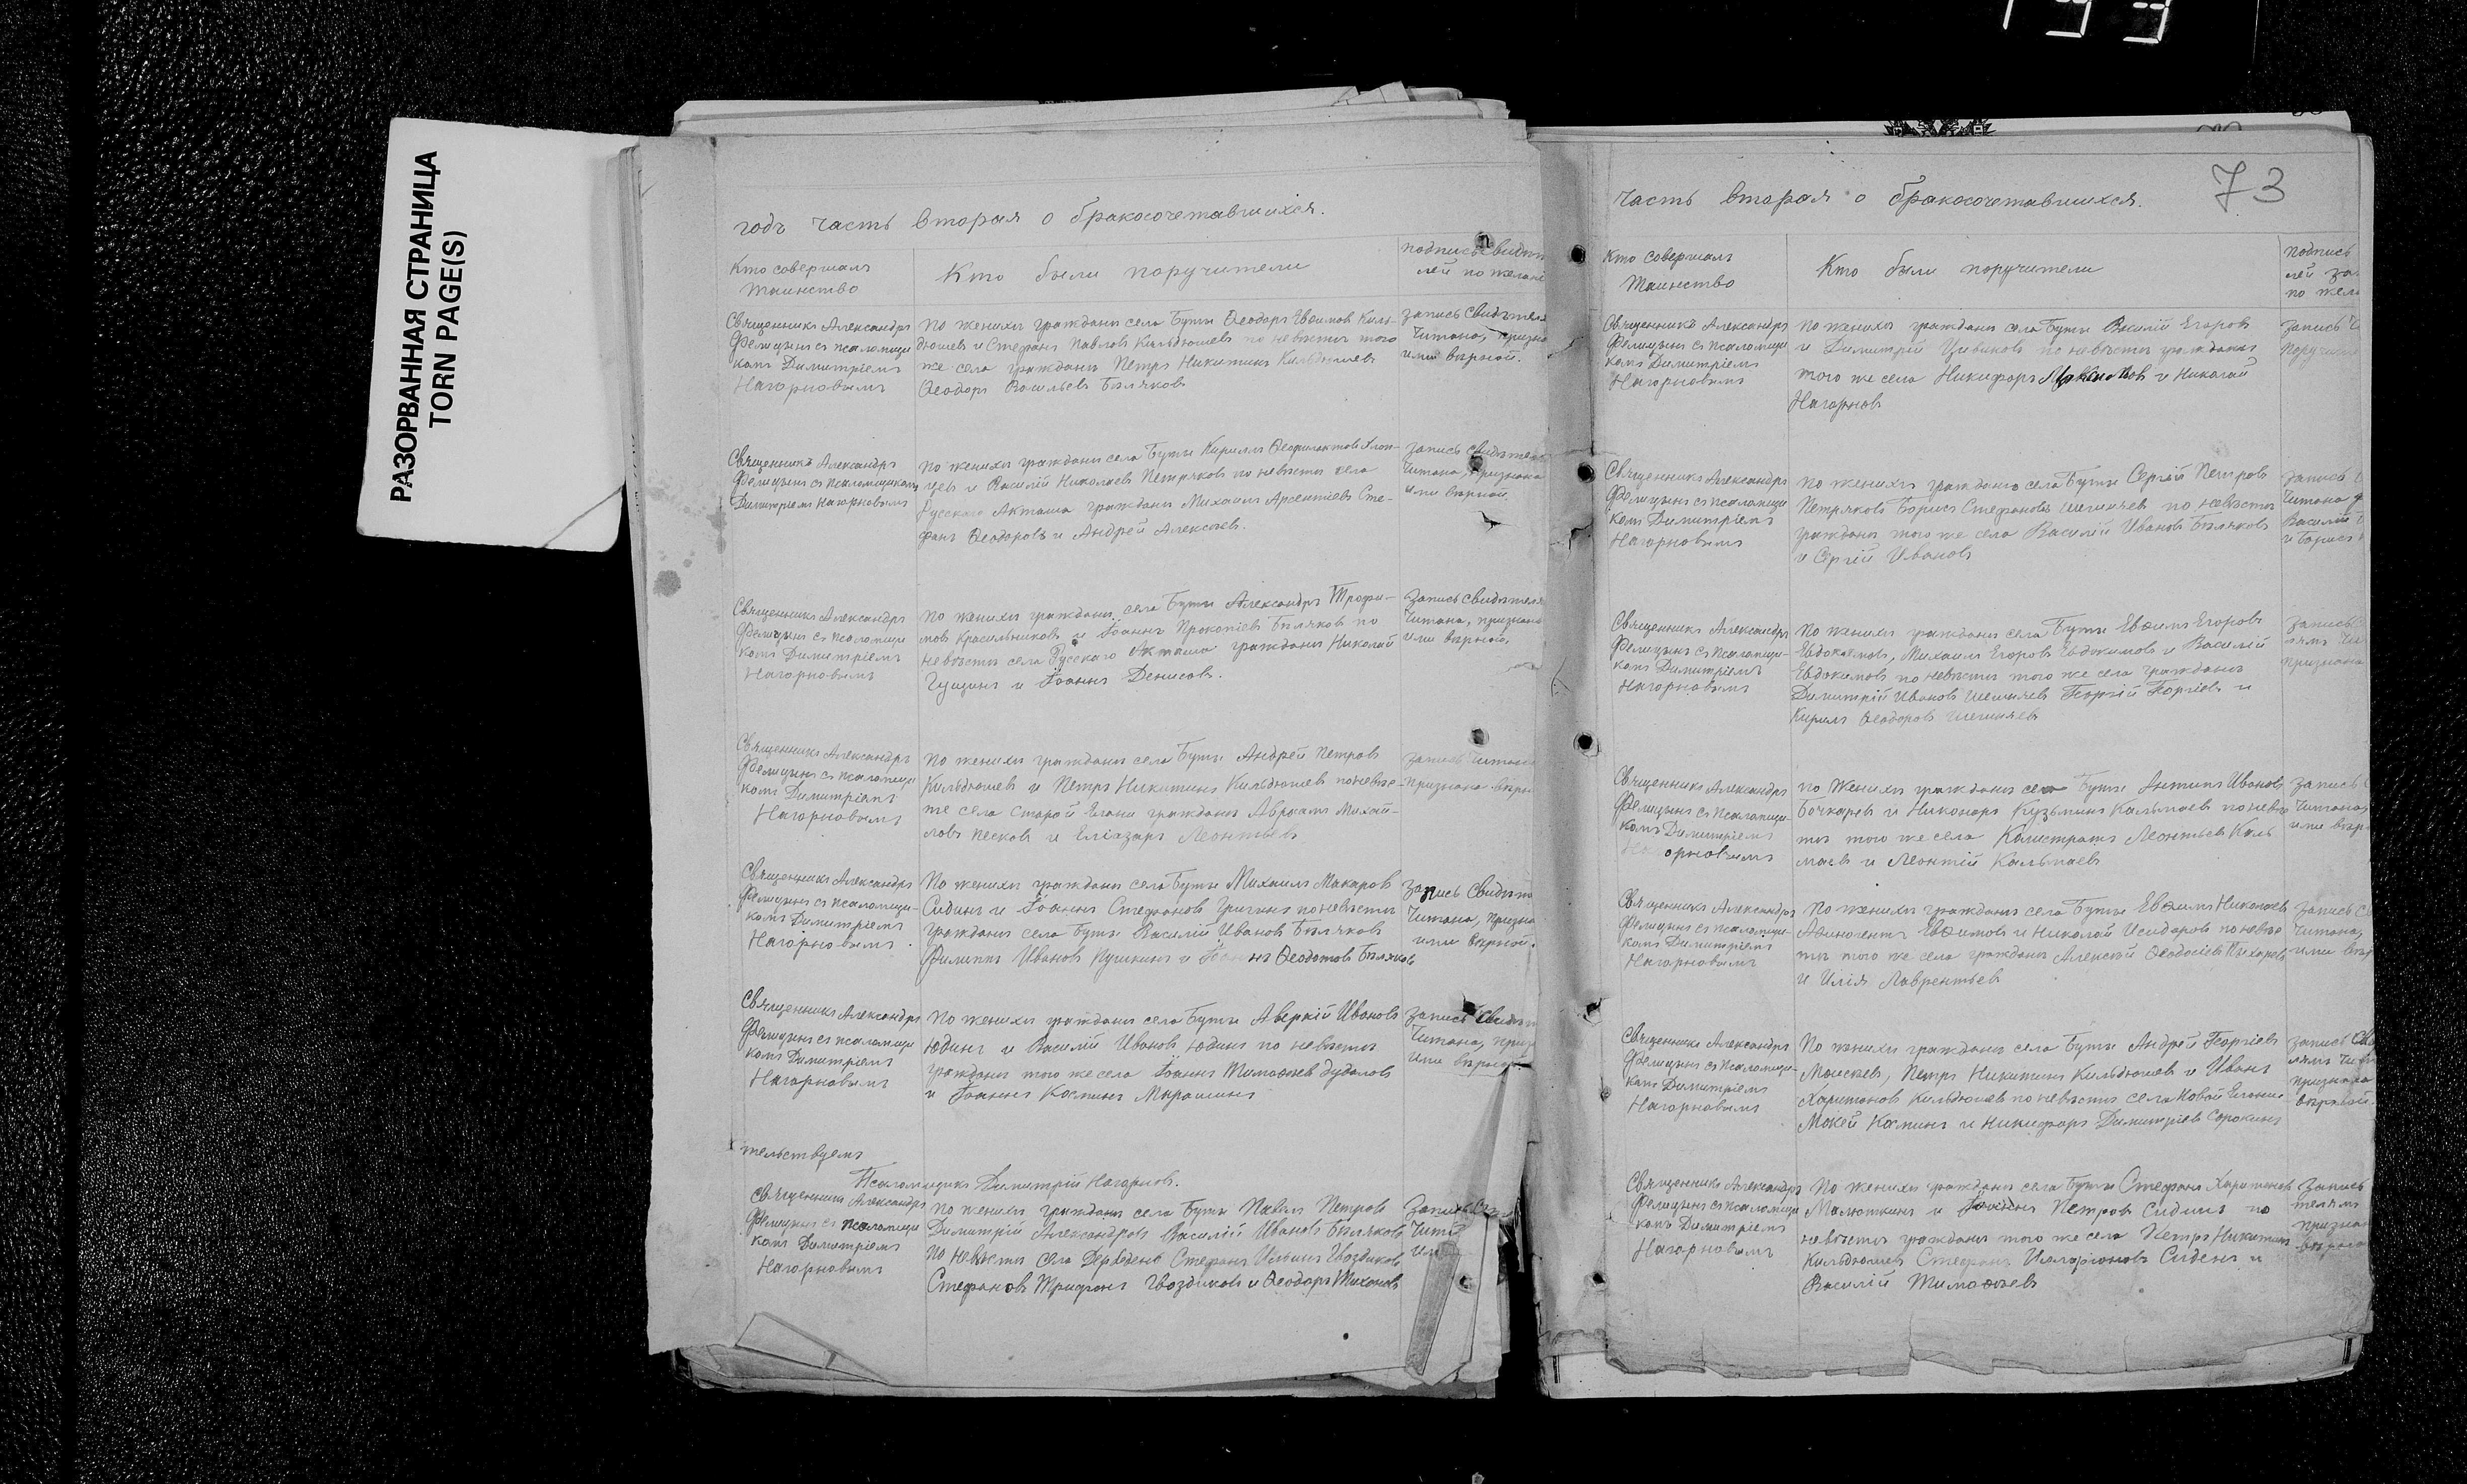 РАЗОРВАННАЯ СТРАНИЦА
TORN PAGE(S)
годъ часть вторая о бракосочетавшихся.
Кто совершалъ
таинство
Кто были поручители
подпись свидѣте
лей по желані
Священникъ Александръ
Фелицынъ съ псаломщи
комъ Димитріемъ
Нагорновымъ
По женихѣ граждани села Буты Ѳеодоръ Евѳимов Киль-
дюшев и Стефанъ Павлов Кильдюшев по невѣстѣ того
же села граждани Петръ Никитинъ Кильдюшев
Ѳеодоръ Васильев Бѣляков
запись свидѣтеля
читана, призна
ими вѣрной.
Священникъ Александръ
Фелицынъ съ псаломщикомъ
Димитріемъ Нагорновымъ
По женихѣ граждани села Буты Кириллъ Ѳеофилактов
и Василій Николаев Петряков по невѣстѣ села
Русскаго Акташа граждани Михаилъ Арсентіев Сте-
фанъ Ѳеодоровъ и Андрей Алексѣев.
запись свидѣтел
читана, признана
ими вѣрной
Священникъ Александръ
Фелицынъ съ псаломщи
комъ Димитріемъ
Нагорновымъ
По женихѣ граждани села Буты Александръ Трофи-
мов Красильников и Іоаннъ Прокопіев Бѣляков по
невѣстѣ села Русскаго Акташа граждани Николай
Гущинъ и Іоаннъ Денисов.
Запись свидѣтеля
читана, признана
ими вѣрной,
Священникъ Александръ
Фелицынъ съ псаломщи
комъ Димитріемъ
Нагорновымъ
По женихѣ граждани села Буты Андрей Петров
Кильдюшев и Петръ Никитинъ Кильдюшев по невѣс-
тѣ села Старой Елани граждани Аврамъ Михай-
ловъ Песков и Еліазаръ Леонтьев
запись читана
признана вѣрн
Священникъ Александръ
Фелицынъ съ псаломщи-
комъ Димитріемъ
Нагорновымъ.
По женихѣ граждани села Буты Михаилъ Макаров
Сидинъ и Іоаннъ Стефанов Григинъ по невѣстѣ
граждани села Буты Василій Иванов Бѣляков
Филиппъ Иванов Пушкинъ и Іоаннъ Ѳеодотов Бѣляков
Запись свидѣте
читана, призна
ими вѣрной.
Священникъ Александръ
Фелицынъ съ псаломщи
комъ Димитріемъ
Нагорновымъ
По женихѣ граждани села Буты Аверкій Иванов
Юдинъ и Василій Иванов Юдинъ по невѣстѣ
граждани того же села Іоаннъ Тимоѳеев Дудалов
и Іоаннъ Косминъ Мирошинъ
Запись свидѣт
читана, приз
ими вѣрной
тельствуемъ
Псаломщикъ Димитрій Нагорнов.
Священникъ Александръ
Фелицынъ съ псаломщи
комъ Димитріемъ
Нагорновымъ
По женихѣ граждани села Буты Павелъ Петров
Димитрій Александров Василій Иванов Бѣляков
По невѣстѣ села Стефанъ Ильинъ Гвоздиков
Стефанов Трифонъ Гвоздиков и Ѳеодоръ Тихонов
Запись
чита
ими
73
часть вторая о бракосочетавшихся.
Кто совершалъ
Таинство
Кто были поручители
подпись
лей за
по жела
Священникъ Александръ
Фелицынъ съ псаломщи
комъ Димитріемъ
Нагорновымъ
По женихѣ граждани села Буты Василій Егоров
и Димитрій Цивиков по невѣстѣ граждани
того же села Никифоръ и Николай
Нагорнов
запись
поручи
Священникъ Александръ
Фелицынъ съ псаломщи
комъ Димитріемъ
Нагорновымъ
По женихѣ граждани села Буты Сергій Петров
Петряков Борисъ Стефановъ Шешняев по невѣстѣ
граждани того же села Василій Иванов Бѣляков
и Сергій Иванов
запись
читана
Василій
и Борисъ
Священникъ Александръ
Фелицынъ съ псаломщи-
комъ Димитріемъ
Нагорновымъ
По женихѣ граждани села Буты Евѳимъ Егоров
Евдокимов, Михаилъ Егоров Евдокимов и Василій
Евдокимов по невѣстѣ того же села граждани
Димитрій Иванов Шешняев Георгій Георгіев и
Кирилъ Ѳеодоров Шешняев
запись
лямъ чи
признана
Священникъ Александръ
Фелицынъ съ псаломщи-
комъ Димитріемъ
орновымъ
По женихѣ граждани села Буты Антипъ Иванов
Бочкарев и Никоноръ Кузьминъ Кальмаев по невѣс
тѣ того же села Калистратъ Леонтьев Каль
маев и Леонтій Кальмаев
запись
читана,
ими вѣр
Священникъ Александръ
Фелицынъ съ псаломщи-
комъ Димитріемъ
Нагорновымъ
По женихѣ граждани села Буты Евѳимъ Николаев
Аѳиногентъ Евѳимов и Николай Исидоров по невѣс
тѣ того же села граждани Алексѣй Ѳеодосіев Пихарев
и Илія Лаврентьев
запись св
читана,
ими вѣр
Священникъ Александръ
Фелицынъ съ псаломщи-
комъ Димитріемъ
Нагорновымъ
По женихѣ граждани села Буты Андрей Георгіев
Моисеев, Петръ Никитинъ Кильдюшев и Иванъ
Харитонов Кильдюшев по невѣстѣ села Новой Елани
Мокей Косминъ и Никифоръ Димитріев Сорокинъ
запись сви
лямъ чи
признана
вѣрной
Священникъ Александръ
Фелицынъ съ псаломщи
комъ Димитріемъ
Нагорновымъ
По женихѣ граждани села Буты Стефанъ Харитонов
Малюткинъ и Іоаннъ Петров Сидинъ по
невѣстѣ граждани того же села Петръ Никитинъ
Кильдюшев Стефанъ Иларіонов Сидинъ и
Василій Тимоѳеев
запись
телямъ
признан
вѣрной